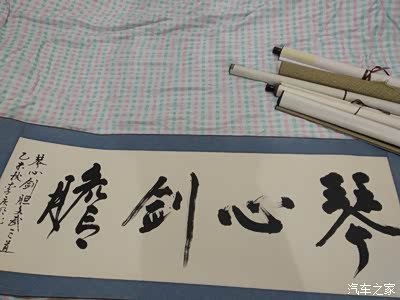 琴心剑膽
琴心剑胆
乙未秋
汽车之家